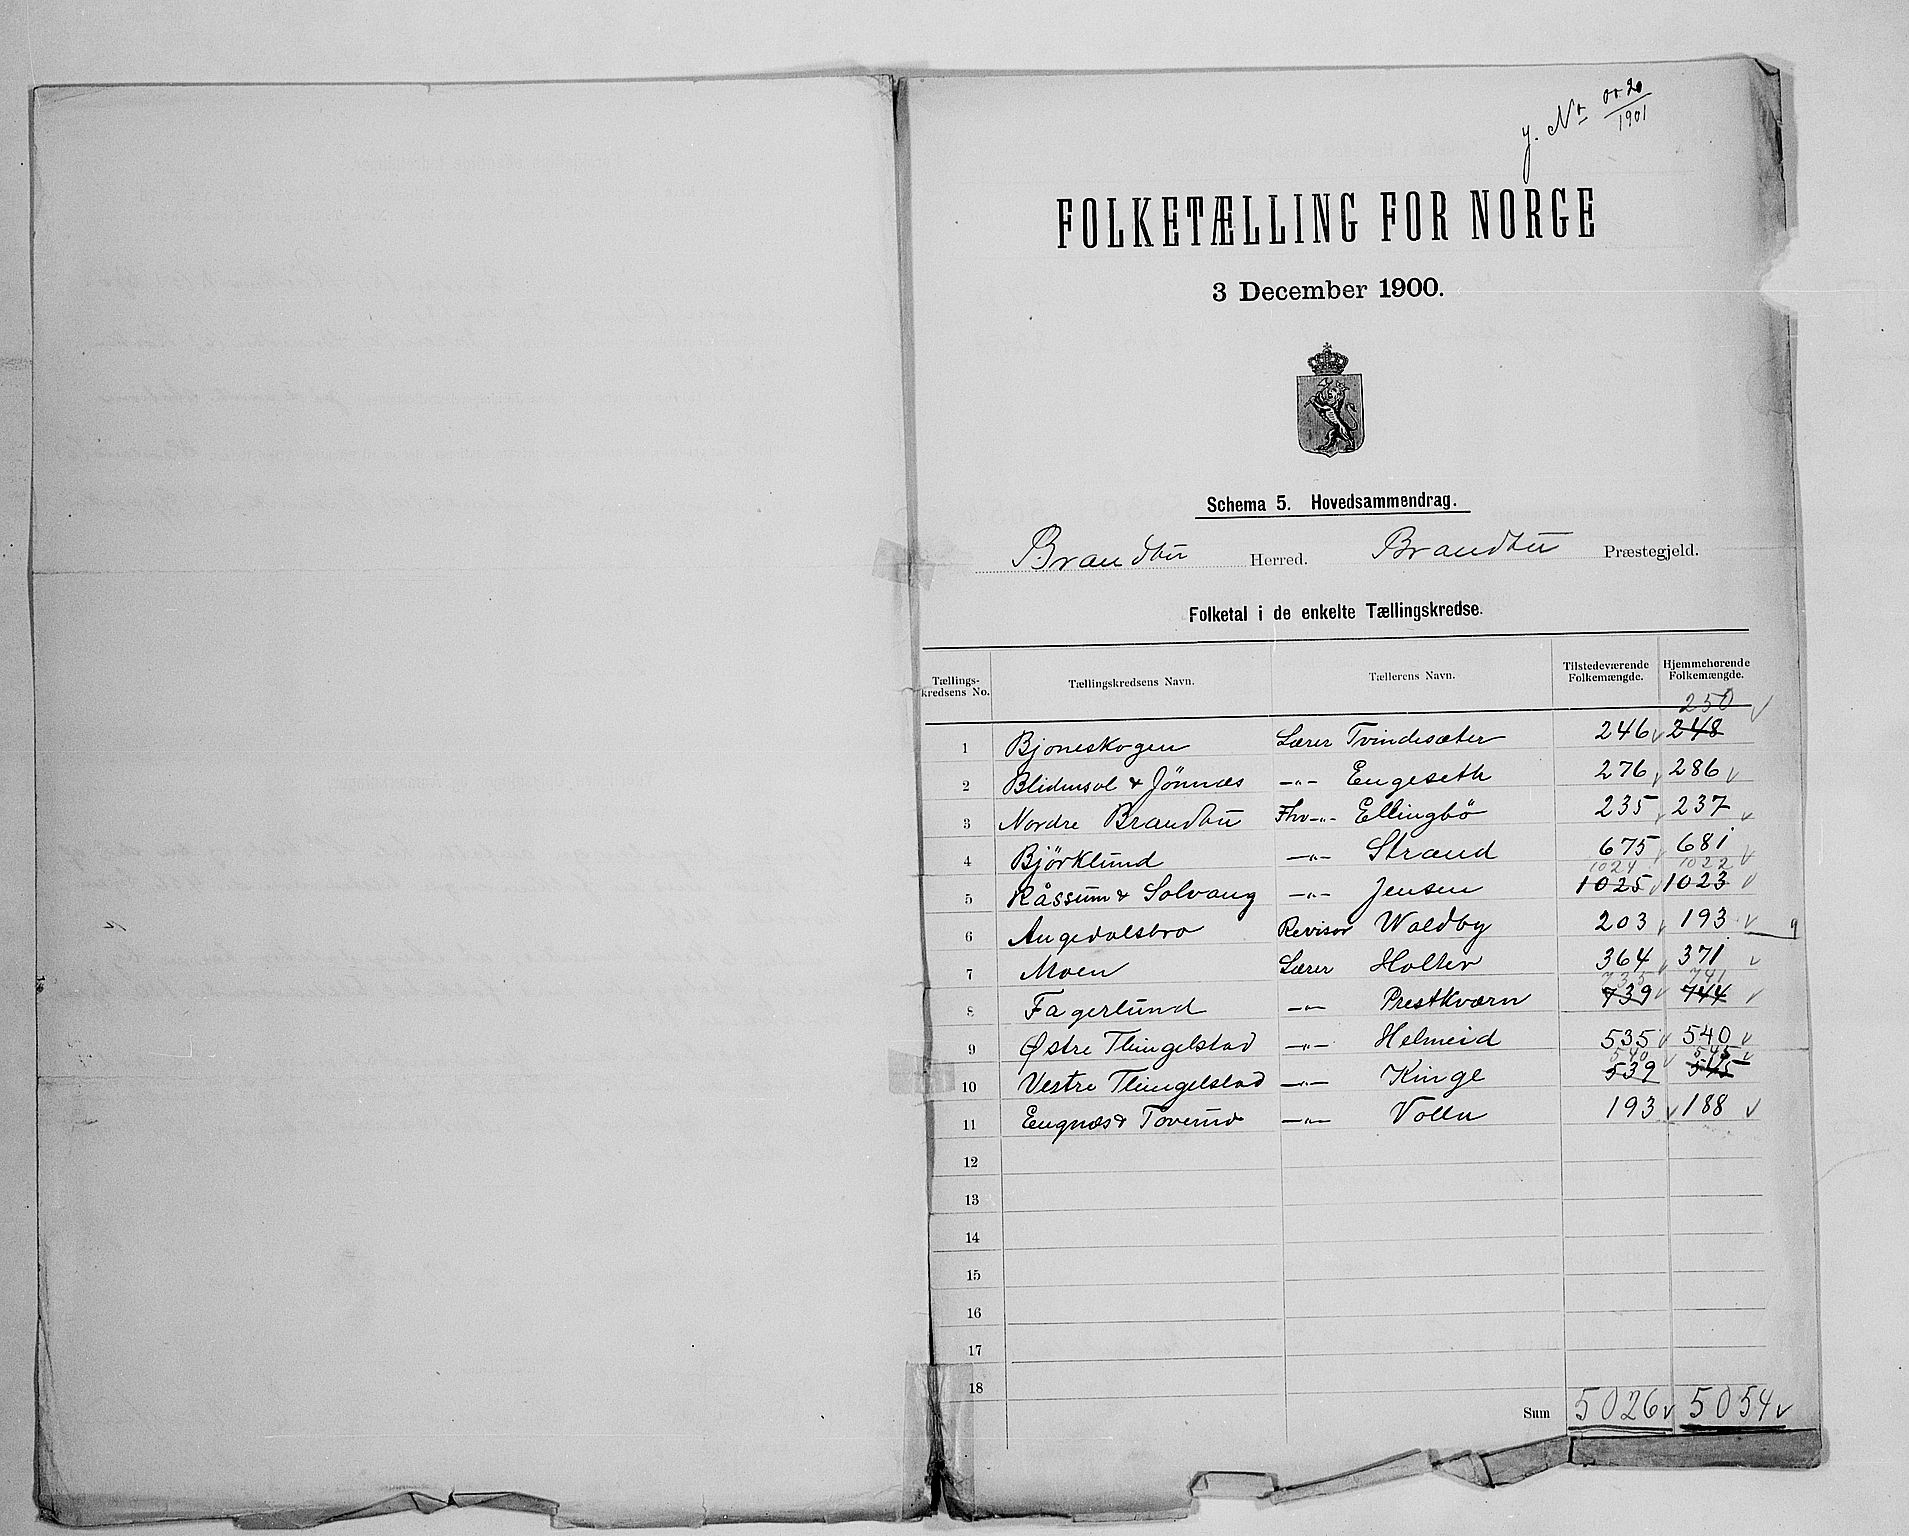 J. No 0020/1901
FOLKETÆLLING FOR NORGE
3 December 1900.
Schema 5. Hovedsammendrag.
Brandbu Herred. Brandbu Præstegjeld.
Folketal i de enkelte Tællingskredse.
Tællings-kredsens No. Tællingskredsens Navn. Tællerens Navn. Tilstedeværende Folkemængde. Hjemmehørende Folkemængde.
250
1 Bjoneskogen Lærer Tvindesæter 246 248
2 Blidensol & Jønnæs —"— Engeseth 276 286
3 Nordre Brandbu Fhv —"— Ellingbö 235 237
4 Björklund —"— Strand 675 681
1024 1022
5 Råssum & Solvang —"— Jensen 1025 1023
6 Augedalsbro Revisor Waldby 203 193
7 Moen Lærer Holter 364 371
735 741
8 Fagerlund —"— Prestkværn 739 744
9 Østre Tlingelstad —"— Helmeid 535 540
540 545
10 Vestre Tlingelstad —"— Kinge 539 545
11 Engnæs & Toverud —"— Volln 193 188
12
13
14
15
16
17
18
Sum 5026 5054